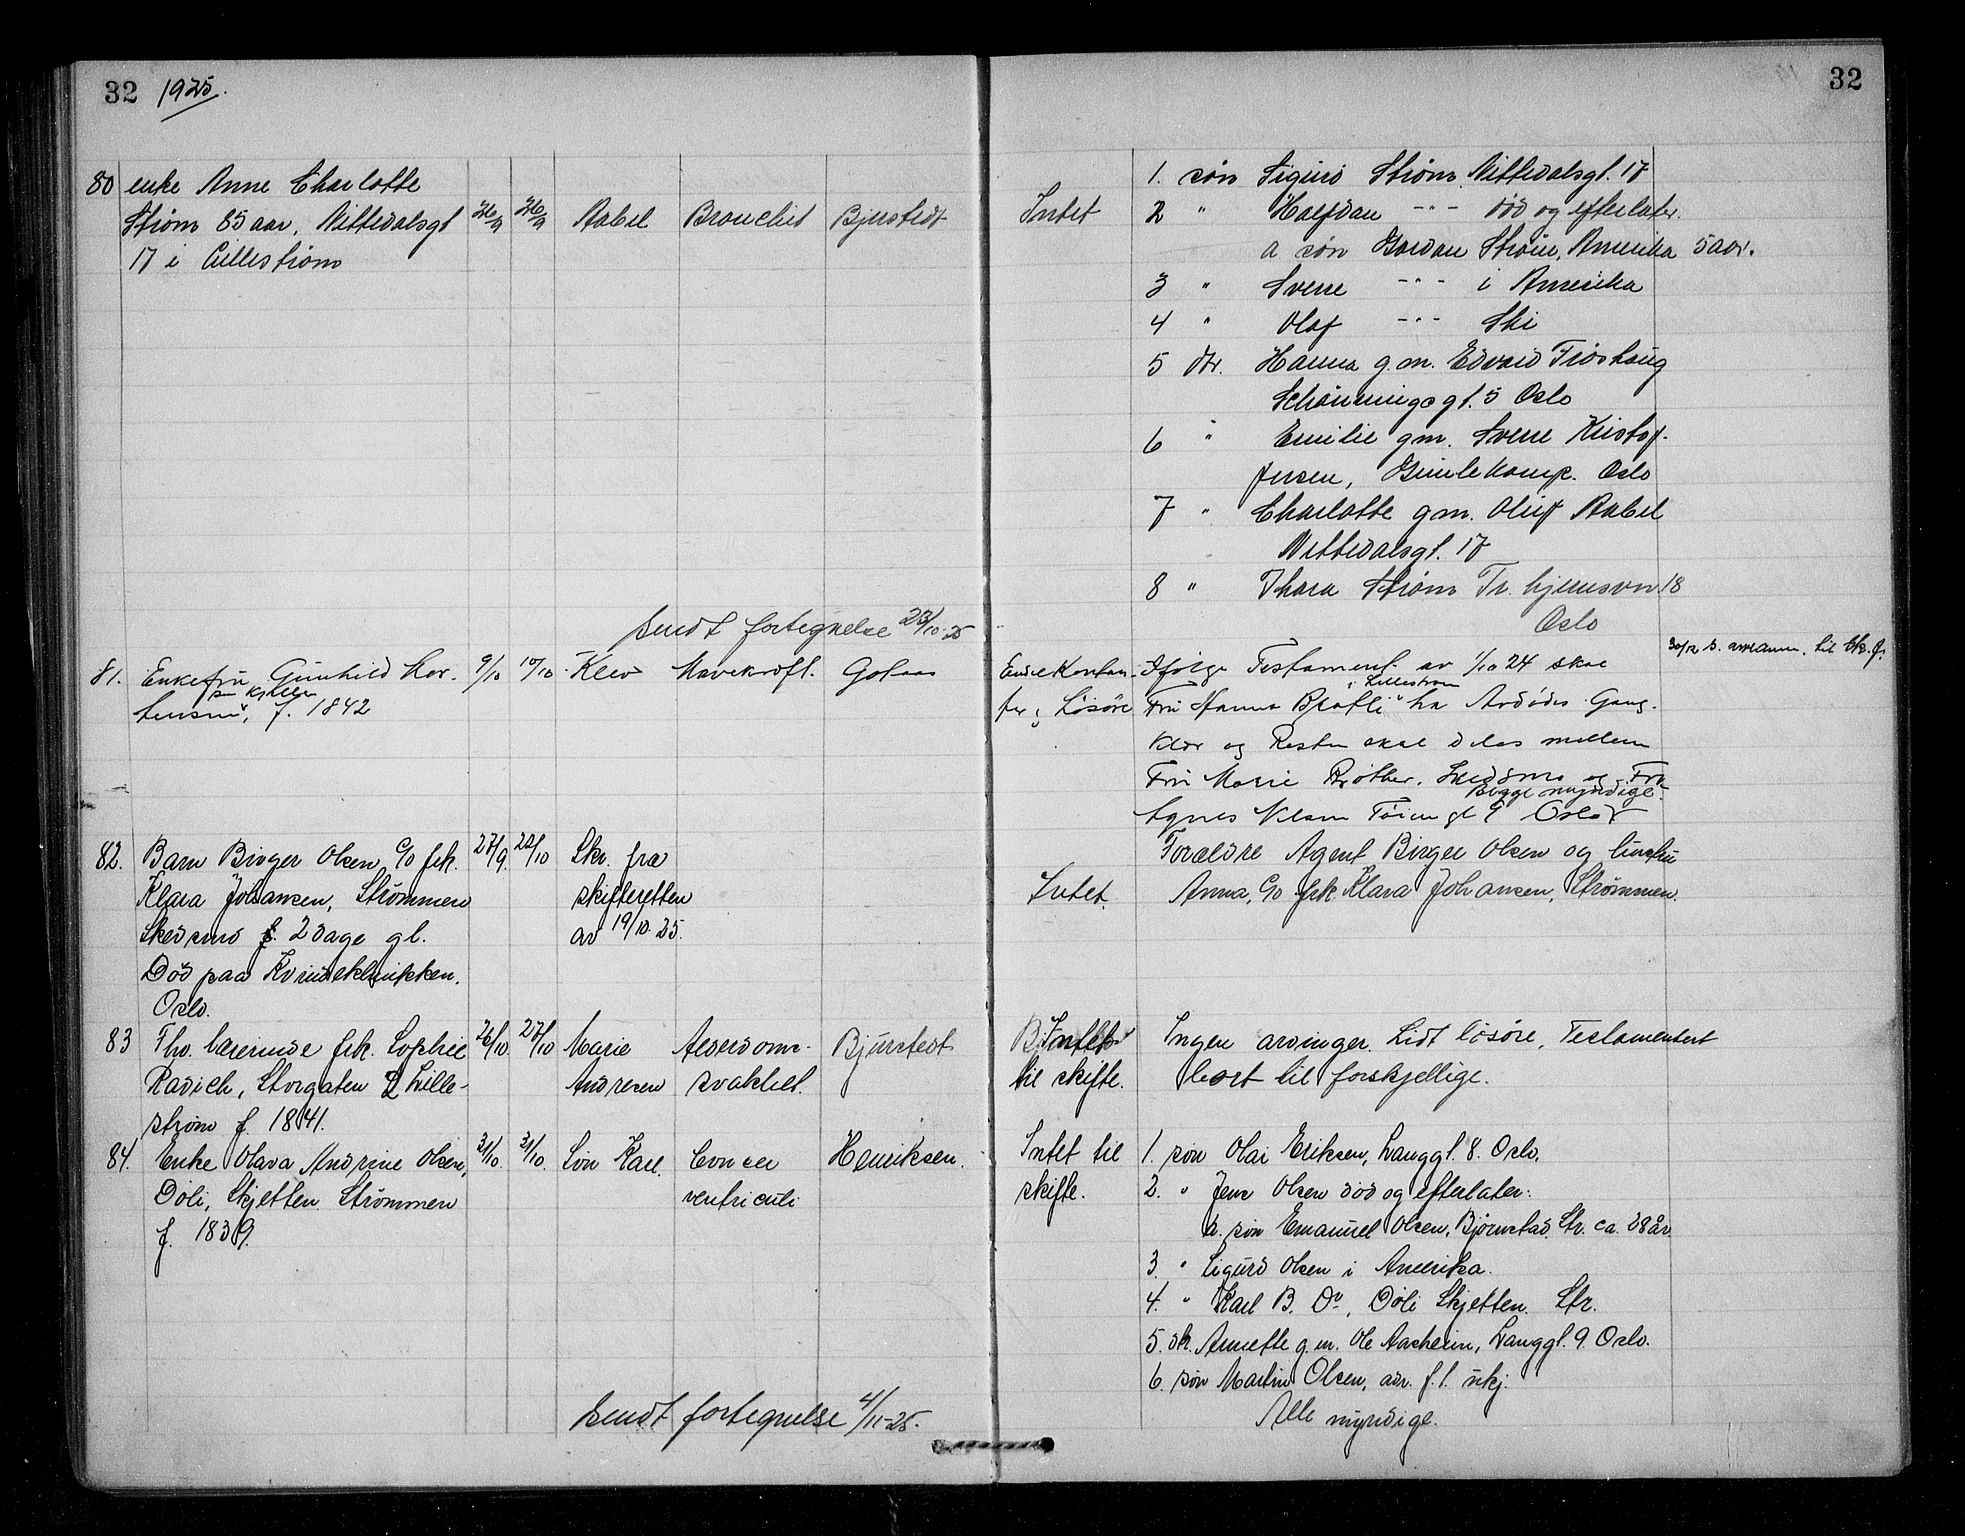 32 1925.
32
80 enke Anne Charlotte
Strøm 85 aar, Nittedalsgt
17 i Lillestrøm
26/9 26/9 Aabel Bronchit Bjustedt
Intet
1. søn Sigurd Strøm Nittedalsgt. 17
2 " Halfdan -"- død og efterlater.
a søn Gordan Strøm, Amerika 5 aar.
3 " Sverre -"- i Amerika
4 " Olaf -"- Ski
5 dtr. Hanna g.m. Edvard Frøshaug
Schøningsgt. 5 Oslo
6 " Emilie gm. Sverre Kristof-
fersen, Oslo
7 " Charlotte gm. Oluf Aabel
Nittedalsgt. 17
8 " Thora Strøm Tr.hjemsvn 18
Oslo
Sendt fortegnelse 23/10-25
81. Enkefru Gunhild Lor-
pr Kjeller
tensen, f. 1842
9/10 10/10 Klev Mavekræft. Golaas
Endel Kontan-
ter, Løsøre
Ifølge Testament av 1/10 24 skal
i Lillestrøm
Fru Hanna Bratli ha Avdødes Gang-
klær og Resten skal deles mellem
Fru Marie Skedsmo og Fru
Begge myndige.
Agnes Nilsen Tøiengt 9 Oslo
30/12 s. til
82. Barn Birger Olsen, c/o frk.
Klara Johansen, Strømmen
Skedsmo f. 2 dage gl.
Død paa Kvindeklinikken.
Oslo.
27/9. 22/10 Skr. fra
skifteretten
av 19/10.25.
Intet.
Forældre Agent Birger Olsen og hustru
Anna, c/o frk Klara Johansen, Strømmen.
83 Fhv. lærerinde frk. Sophie
Radich, Storgaten 2 Lille-
strøm f. 1841.
26/10. 27/10 Marie
Andresen
Alderdoms-
svakhet.
Bjustedt
Intet
til skifte.
Ingen arvinger. Lidt løsøre. Testamentert
bort til forskjellige.
84. Enke Olava Andrine Olsen,
Døli, Skjetten Strømmen
f. 1839.
31/10. 31/10. Søn Karl. Cancer
ventriculi
Henriksen.
Intet til
skifte.
1. søn Olai Eriksen, Langgt. 8. Oslo.
2. " Jens Olsen død og efterlater:
a. søn Emanuel Olsen, Bjørnstad Str. ca. 28 år.
3. " Sigurd Olsen i Amerika.
4. " Karl B. Do, Døli Skjetten. Str.
5. dt. Annette g.m. Ole Aasheim, Langgt. 9. Oslo.
6. søn Martin Olsen, adr. f.t. ukj.
Alle myndige.
Sendt fortegnelse 4/11-25.